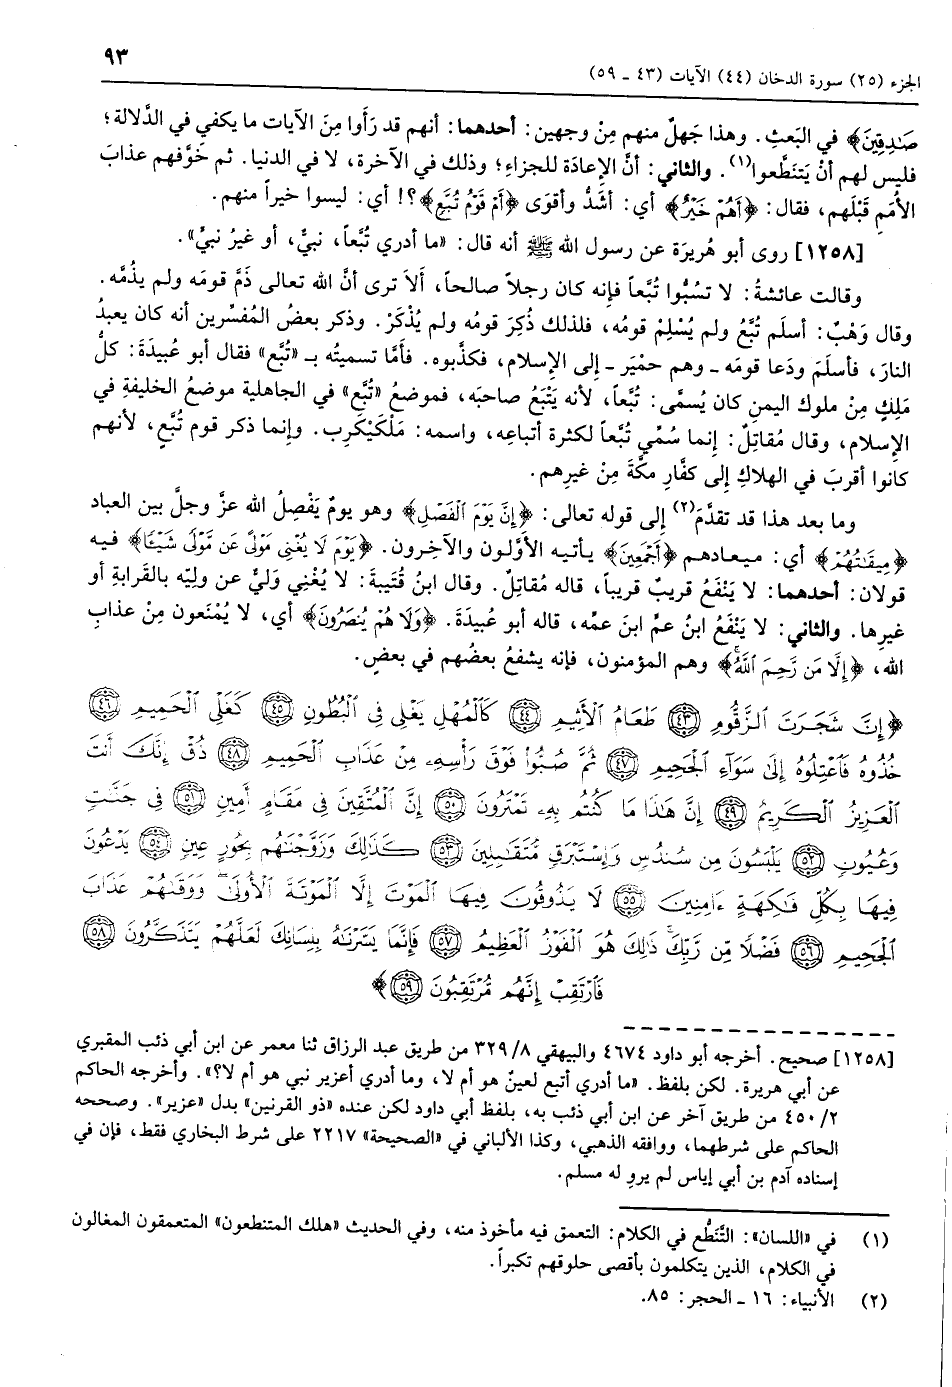 الجزء (٢٥) سورة الدخان (٤٤) الآيات (٤٣ ـ ٥٩)
٩٣
صَٰدِقِينَ﴾ في البَعثِ. وهذا جَهلٌ منهم مِنْ وجهين: أحدهما: أنهم قد رَأَوا مِنَ الآيات ما يكفي في الدَّلالة؛
فليس لهم أنْ يَتنَطَّعوا(١). والثاني: أنَّ الإعادَة للجزاء؛ وذلك في الآخرة، لا في الدنيا. ثم خَوَّفهم عذابَ
الأمَم قَبْلَهم، فقال: ﴿أَهُمْ خَيْرٌ﴾ أي: أشَدُّ وأقوَى ﴿أَمْ قَوْمُ تُبَّعٍ﴾؟! أي: ليسوا خيراً منهم.
[١٢٥٨] روى أبو هُريرَة عن رسول الله ﷺ أنه قال: «ما أدري تُبَّعاً، نبيٌّ، أو غيرُ نبيٍّ».
وقالت عائشةُ: لا تسُبُّوا تُبَّعاً فإنه كان رجلاً صالحاً، أَلاَ ترى أنَّ الله تعالى ذَمَّ قومَه ولم يذُمَّه.
وقال وَهْبٌ: أسلَم تُبَّعُ ولم يُسْلِمْ قومُه، فلذلك ذُكِرَ قومُه ولم يُذْكَرْ. وذكر بعضُ المُفسِّرين أنه كان يعبدُ
النارَ، فأسلَمَ ودَعا قومَه ـ وهم حمْيَر ـ إلى الإسلام، فكذَّبوه. فأمَّا تسميتُه بـ «تُبَّع» فقال أبو عُبيدَةَ: كلُّ
مَلِكٍ مِنْ ملوك اليمن كان يُسمَّى: تُبَّعاً، لأنه يَتْبَعُ صاحبَه، فموضعُ «تُبَّع» في الجاهلية موضعُ الخليفةِ في
الإسلام، وقال مُقاتِلٌ: إنما سُمِّي تُبَّعاً لكثرة أتباعِه، واسمه: مَلْكَيْكَرِب. وإنما ذكر قوم تُبَّع، لأنهم
كانوا أقربَ في الهلاكِ إلى كفَّارِ مكَّةَ مِنْ غيرِهم.
وما بعد هذا قد تقدَّمَ(٢) إلى قوله تعالى: ﴿إِنَّ يَوْمَ ٱلْفَصْلِ﴾ وهو يومٌ يَفْصِلُ الله عزَّ وجلَّ بين العباد
﴿مِيقَٰتُهُمْ﴾ أي: ميعادهم ﴿أَجْمَعِينَ﴾ يأتيه الأوَّلون والآخِرون. ﴿يَوْمَ لَا يُغْنِى مَوْلًى عَن مَّوْلًى شَيْـًٔا﴾ فيه
قولان: أحدهما: لا يَنْفَعُ قريبٌ قريباً، قاله مُقاتِلٌ. وقال ابنُ قُتَيبةَ: لا يُغْنِي وَليٌّ عن وليّه بالقَرابةِ أو
غيرِها. والثاني: لا يَنْفَعُ ابنُ عمٍّ ابنَ عمِّه، قاله أبو عُبيدَةَ. ﴿وَلَا هُمْ يُنصَرُونَ﴾ أي، لا يُمْنَعون مِنْ عذابِ
الله، ﴿إِلَّا مَن رَّحِمَ ٱللَّهُ﴾ وهم المؤمنون، فإنه يشفعُ بعضُهم في بعضٍ.
﴿إِنَّ شَجَرَتَ ٱلزَّقُّومِ ٤٣ طَعَامُ ٱلْأَثِيمِ ٤٤ كَٱلْمُهْلِ يَغْلِى فِى ٱلْبُطُونِ ٤٥ كَغَلْىِ ٱلْحَمِيمِ ٤٦
خُذُوهُ فَٱعْتِلُوهُ إِلَىٰ سَوَآءِ ٱلْجَحِيمِ ٤٧ ثُمَّ صُبُّوا۟ فَوْقَ رَأْسِهِۦ مِنْ عَذَابِ ٱلْحَمِيمِ ٤٨ ذُقْ إِنَّكَ أَنتَ
ٱلْعَزِيزُ ٱلْكَرِيمُ ٤٩ إِنَّ هَٰذَا مَا كُنتُم بِهِۦ تَمْتَرُونَ ٥٠ إِنَّ ٱلْمُتَّقِينَ فِى مَقَامٍ أَمِينٍ ٥١ فِى جَنَّٰتٍ
وَعُيُونٍ ٥٢ يَلْبَسُونَ مِن سُندُسٍ وَإِسْتَبْرَقٍ مُّتَقَٰبِلِينَ ٥٣ كَذَٰلِكَ وَزَوَّجْنَٰهُم بِحُورٍ عِينٍ ٥٤ يَدْعُونَ
فِيهَا بِكُلِّ فَٰكِهَةٍ ءَامِنِينَ ٥٥ لَا يَذُوقُونَ فِيهَا ٱلْمَوْتَ إِلَّا ٱلْمَوْتَةَ ٱلْأُولَىٰ وَوَقَىٰهُمْ عَذَابَ
ٱلْجَحِيمِ ٥٦ فَضْلًا مِّن رَّبِّكَ ذَٰلِكَ هُوَ ٱلْفَوْزُ ٱلْعَظِيمُ ٥٧ فَإِنَّمَا يَسَّرْنَٰهُ بِلِسَانِكَ لَعَلَّهُمْ يَتَذَكَّرُونَ ٥٨
فَٱرْتَقِبْ إِنَّهُم مُّرْتَقِبُونَ ٥٩﴾
[١٢٥٨] صحيح. أخرجه أبو داود ٤٦٧٤ والبيهقي ٣٢٩/٨ من طريق عبد الرزاق ثنا معمر عن ابن أبي ذئب المقبري
عن أبي هريرة. لكن بلفظ. «ما أدري أتبع لعينٌ هو أم لا، وما أدري أعزير نبي هو أم لا؟». وأخرجه الحاكم
٤٥٠/٢ من طريق آخر عن ابن أبي ذئب به، بلفظ أبي داود لكن عنده «ذو القرنين» بدل «عزير». وصححه
الحاكم على شرطهما، ووافقه الذهبي، وكذا الألباني في «الصحيحة» ٢٢١٧ على شرط البخاري فقط، فإن في
إسناده آدم بن أبي إياس لم يروِ له مسلم.
(١) في «اللسان»: التَّنَطُّع في الكلام: التعمق فيه مأخوذ منه، وفي الحديث «هلك المتنطعون» المتعمقون المغالون
في الكلام، الذين يتكلمون بأقصى حلوقهم تكبراً.
(٢) الأنبياء: ١٦ ـ الحجر: ٨٥.